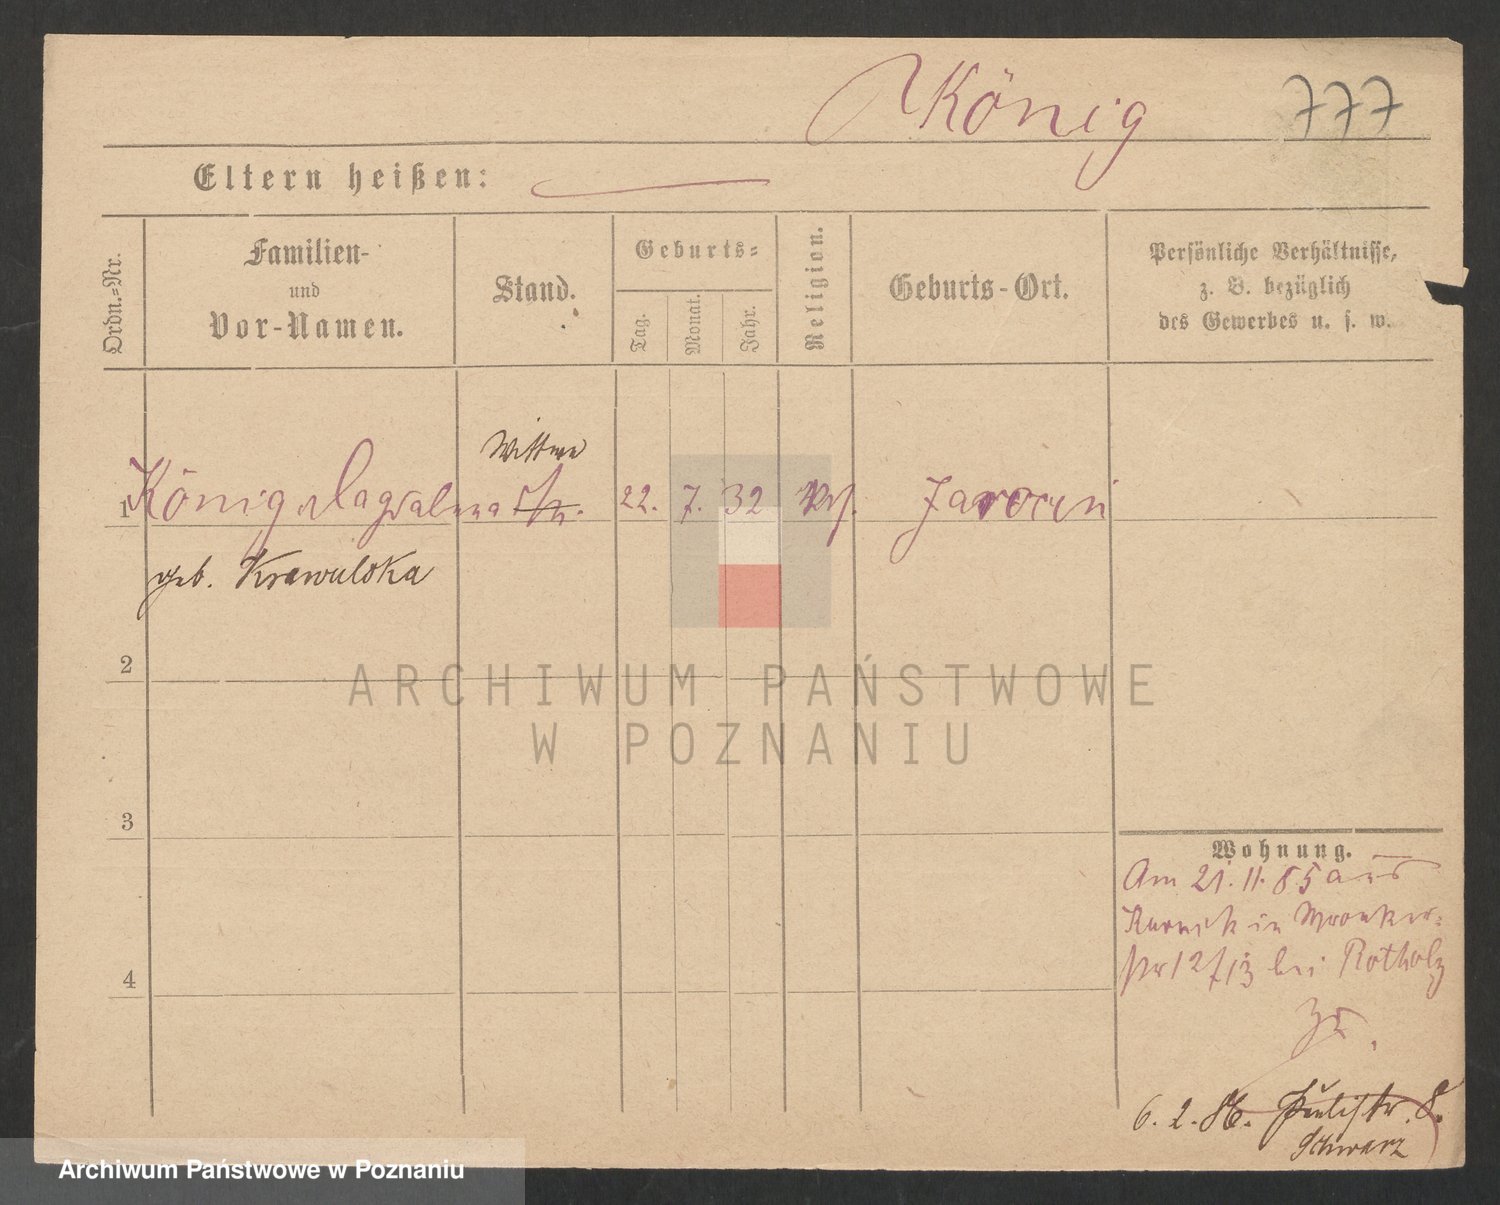 König
777
Eltern heißen:
Ordn.-Nr.
Familien-
und
Vor-Namen.
Stand.
Geburts-
Tag.
Monat.
Jahr.
Religion.
Geburts-Ort.
Persönliche Verhältnisse,
z. B. bezüglich
des Gewerbes u. s. w.
Wittwe
1 König Magdalena 22. 7. 32 Jarocin
geb. Krawulska
2
ARCHIWUM PAŃSTWOWE
W POZNANIU
3
Wohnung.
Am 21. 11. 85 aus
Kurnik in Wronker-
str 12 bei Rotholz
4
6. 2. 86. 8.
Schwarz
Archiwum Państwowe w Poznaniu